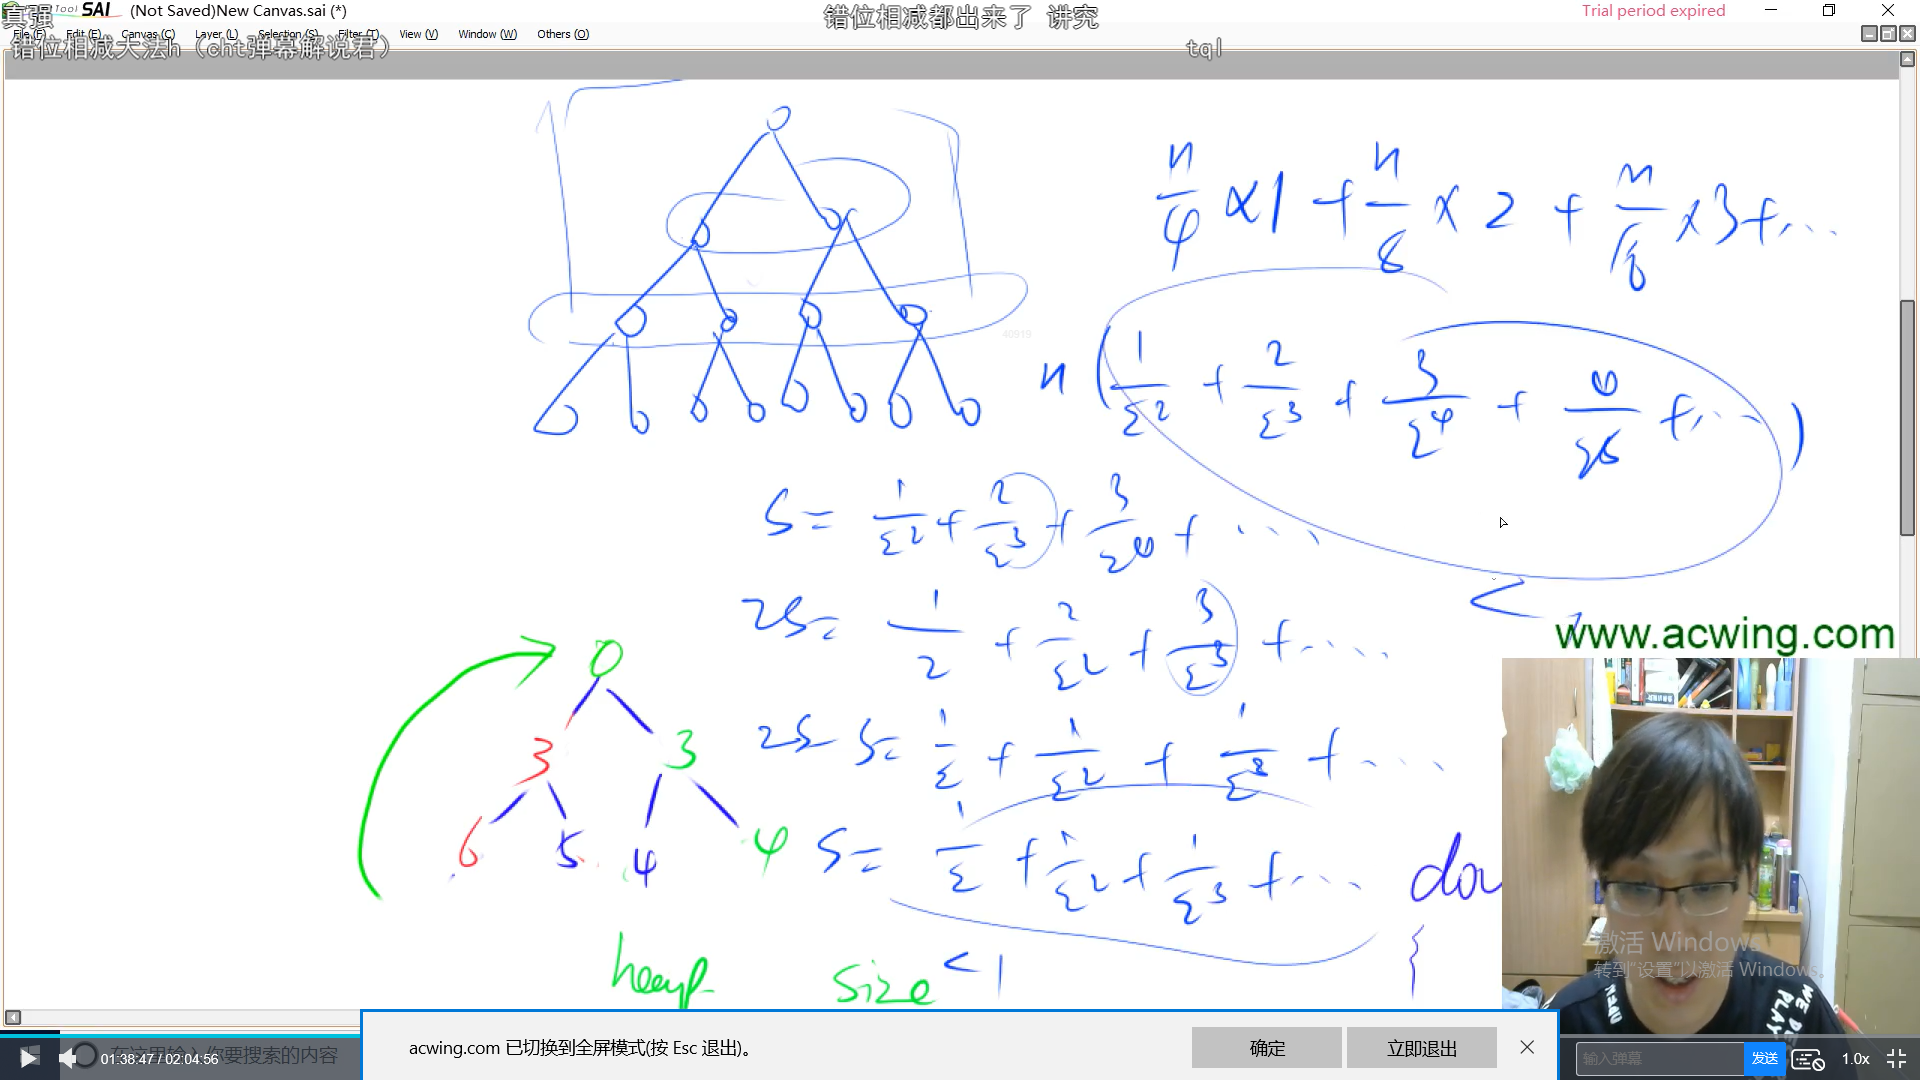 (Not Saved)New Canvas.sai (*)
Tool SAI
真强
错位相减都出来了 讲究
Trial period expired
File (F) Edit (E) Canvas (C) Layer (L) Selection (S) Filter (T) View (V) Window (W) Others (O)
错位相减大法h（cht弹幕解说君）
tql
n/4 ×1 + n/8 × 2 + n/16 ×3+...
40919
n ( 1/2^2 + 2/2^3 + 3/2^4 + 4/2^5 +... )
S= 1/2^2 + 2/2^3 + 3/2^4 + ...
<
2S= 1/2 + 2/2^2 + 3/2^3 + ....
www.acwing.com
0
3 3
6 5 4 4
2S-S= 1/2 + 1/2^2 + 1/2^3 + ...
S= 1/2 + 1/2^2 + 1/2^3 + ...
dow
heap size < 1
{
激活 Windows
转到“设置”以激活 Windows。
01:38:47 / 02:04:56
在这里输入你要搜索的内容
acwing.com 已切换到全屏模式(按 Esc 退出)。
确定
立即退出
输入弹幕
发送
1.0x